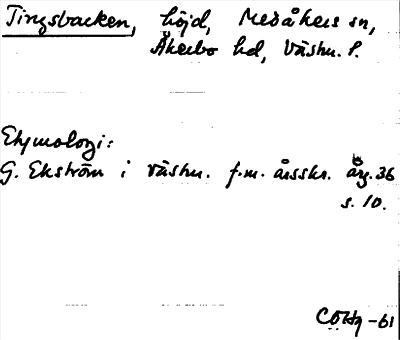 Tingsbacken, höjd, Medåkers sn,
Åkerbo hd, Västm. l.
Etymologi:
G. Ekström i Västm. f.m. årsskr. årg. 36
s. 10.
COHg -61